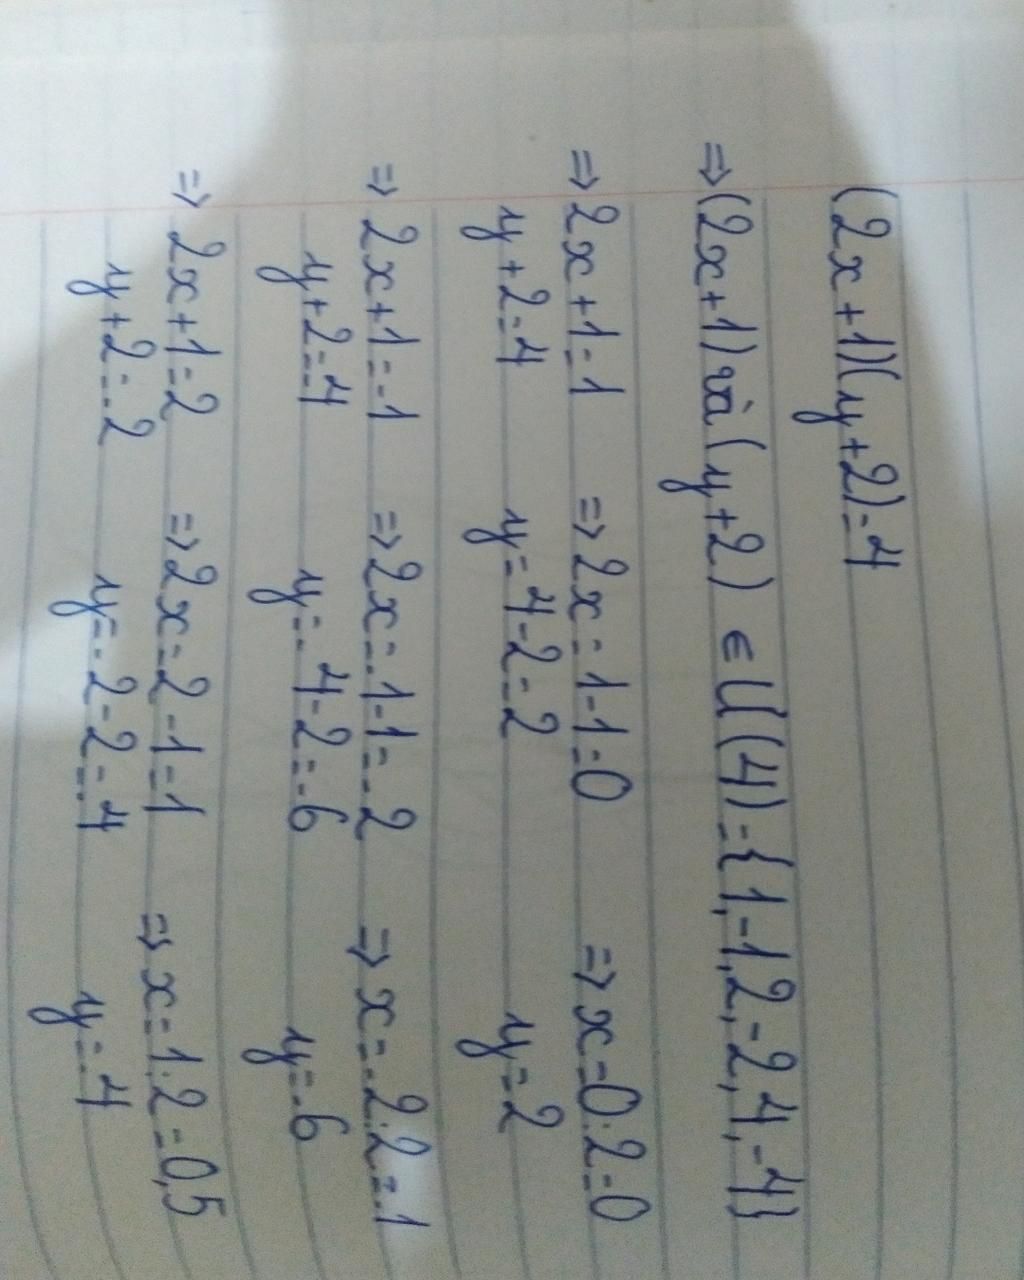 (2x+1)(y+2)=4
=>(2x+1) và (y+2) ∈ Ư(4)={1,-1,2,-2,4,-4}
=> 2x+1=1 => 2x=1-1=0 => x=0:2=0
y+2=4 y=4-2=2 y=2
=> 2x+1=-1 => 2x=-1-1=-2 => x=-2:2=-1
y+2=-4 y=-4-2=-6 y=-6
=> 2x+1=2 => 2x=2-1=1 => x=1:2=0,5
y+2=-2 y=-2-2=-4 y=-4